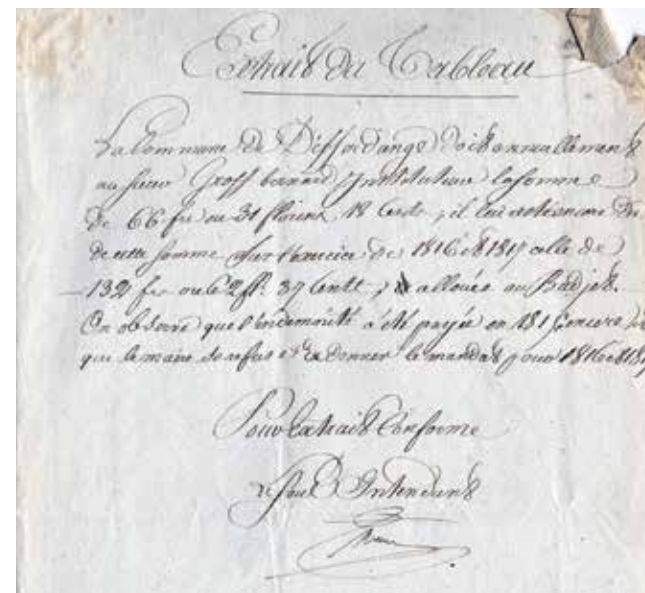 Extrait du Tableau
La Commune de Differdange doit annuellement
au sieur Groff bernard Instituteur la somme
de 66 frs ou 31 florins 18 Cents ; il lui est encore du
de cette somme sur l'exercice de 1816 et 1817 celle de
132 frs ou 62 fl. 37 Cents ; allouée au Badjet.
On observe que l'indemnité a été payée en 1815 encore
que le maire se refuse de donner le mandat pour 1816 et 181
Pour Extrait Conforme
Le Sous Intendant